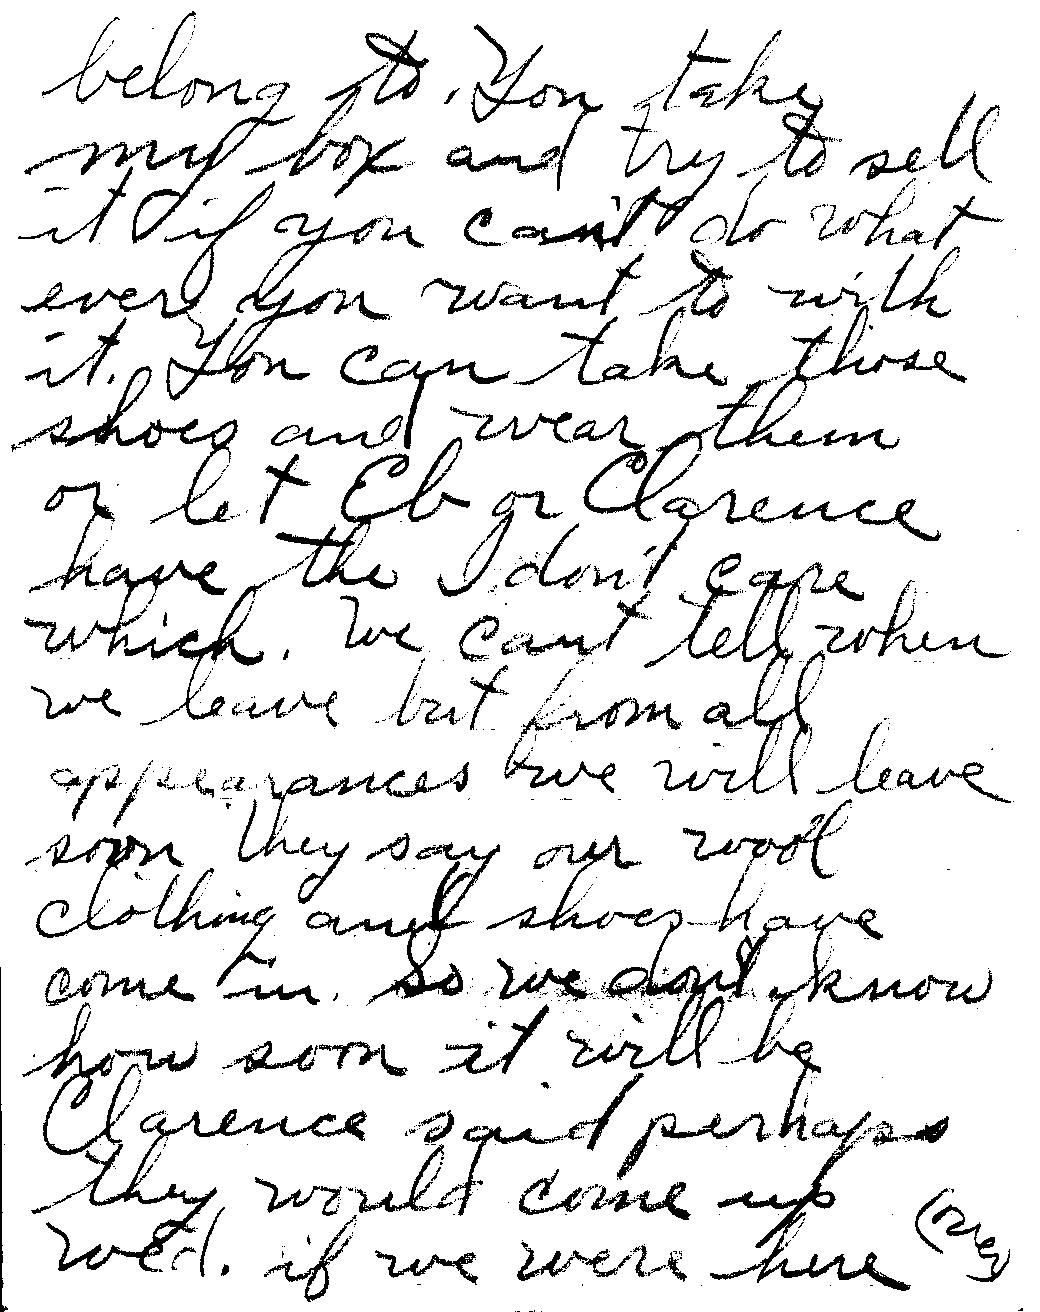 belong to. You take
my box and try to sell
it if you can't do what
ever you want to with
it. You can take those
shoes and wear them
or let Eb or Clarence
have the I don't care
which. We cant tell when
we leave but from all
appearances we will leave
soon they say our wool
clothing and shoes have
come in. So we don't know
how soon it will be
Clarence said perhaps
they would come up
Wed. if we were here
(over)